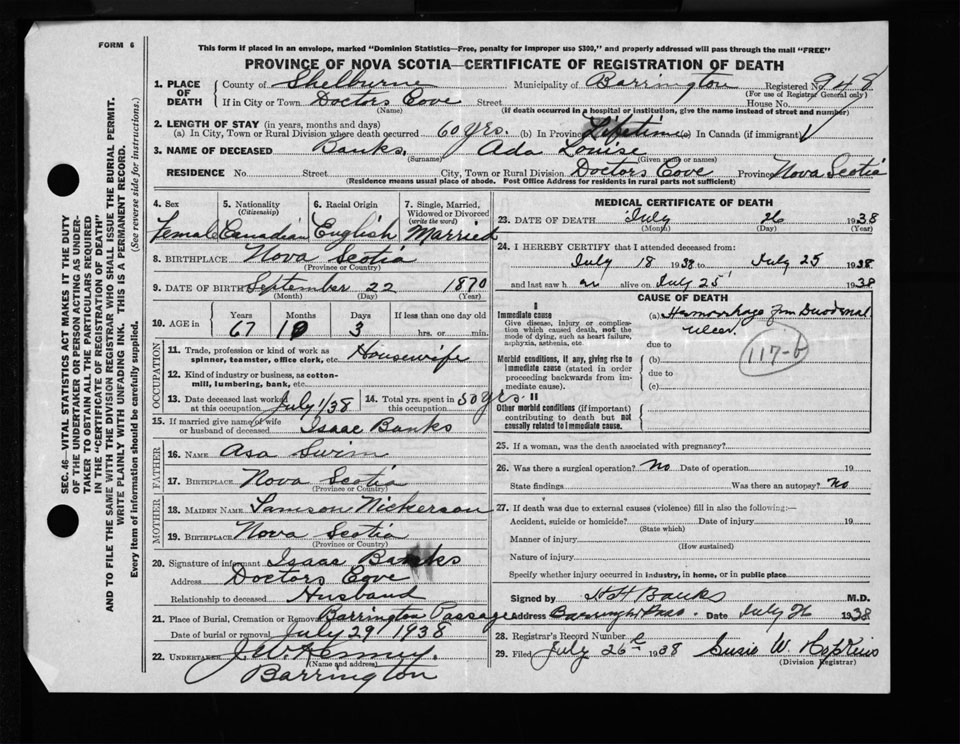 FORM 6
This form if placed in an envelope, marked "Dominion Statistics—Free, penalty for improper use $300," and properly addressed will pass through the mail "FREE"
PROVINCE OF NOVA SCOTIA—CERTIFICATE OF REGISTRATION OF DEATH
1. PLACE OF DEATH County of Shelburne Municipality of Barrington Registered No. 948
(For use of Registrar General only)
If in City or Town Doctors Cove Street House No.
(Name) (If death occurred in a hospital or institution, give the name instead of street and number)
2. LENGTH OF STAY (in years, months and days)
(a) In City, Town or Rural Division where death occurred 60 yrs. (b) In Province Lifetime (c) In Canada (if immigrant) √
3. NAME OF DECEASED Banks, Ada Louise
(Surname) (Given name or names)
RESIDENCE No. Street City, Town or Rural Division Doctors Cove Province Nova Scotia
(Residence means usual place of abode. Post Office Address for residents in rural parts not sufficient)
SEC. 46—VITAL STATISTICS ACT MAKES IT THE DUTY
OF THE UNDERTAKER OR PERSON ACTING AS UNDER-
TAKER TO OBTAIN ALL THE PARTICULARS REQUIRED
IN THE "CERTIFICATE OF REGISTRATION OF DEATH"
AND TO FILE THE SAME WITH THE DIVISION REGISTRAR WHO SHALL ISSUE THE BURIAL PERMIT.
WRITE PLAINLY WITH UNFADING INK. THIS IS A PERMANENT RECORD.
Every item of information should be carefully supplied. (See reverse side for instructions.)
4. Sex 5. Nationality (Citizenship) 6. Racial Origin 7. Single, Married, Widowed or Divorced (write the word)
Female Canadian English Married
8. BIRTHPLACE Nova Scotia
(Province or Country)
9. DATE OF BIRTH September 22 1870
(Month) (Day) (Year)
10. AGE in Years Months Days If less than one day old
67 10 3 hrs. or min.
OCCUPATION
11. Trade, profession or kind of work as spinner, teamster, office clerk, etc. Housewife
12. Kind of industry or business, as cotton-mill, lumbering, bank, etc.
13. Date deceased last worked at this occupation July 1/38 14. Total yrs. spent in this occupation 50 yrs.
15. If married give name of wife or husband of deceased Isaac Banks
FATHER
16. NAME Asa Swim
17. BIRTHPLACE Nova Scotia
(Province or Country)
MOTHER
18. MAIDEN NAME Samson Nickerson
19. BIRTHPLACE Nova Scotia
(Province or Country)
20. Signature of informant Isaac Banks
Address Doctors Cove
Relationship to deceased Husband
21. Place of Burial, Cremation or Removal Barrington Passage
Date of burial or removal July 29 1938
22. UNDERTAKER
(Name and address)
Barrington
MEDICAL CERTIFICATE OF DEATH
23. DATE OF DEATH July 26 1938
(Month) (Day) (Year)
24. I HEREBY CERTIFY that I attended deceased from:
July 18 1938 to July 25 1938
and last saw h er alive on July 25 1938
CAUSE OF DEATH
I
Immediate cause
Give disease, injury or complication which caused death, not the mode of dying, such as heart failure, asphyxia, asthenia, etc
(a) Hamorrhage from Duodenal
ulcer.
due to
117-b
Morbid conditions, if any, giving rise to immediate cause (stated in order proceeding backwards from immediate cause).
(b)
due to
(c)
II
Other morbid conditions (if important) contributing to death but not causally related to immediate cause.
25. If a woman, was the death associated with pregnancy?
26. Was there a surgical operation? No Date of operation 19
State findings Was there an autopsy? No
27. If death was due to external causes (violence) fill in also the following:—
Accident, suicide or homicide? Date of injury 19
(State which)
Manner of injury
(How sustained)
Nature of injury
Specify whether injury occurred in industry, in home, or in public place
Signed by H H Banks M.D.
Address Barrington Pass. Date July 26 1938
28. Registrar's Record Number
29. Filed July 26th 1938 Susie W. Hopkins
(Division Registrar)